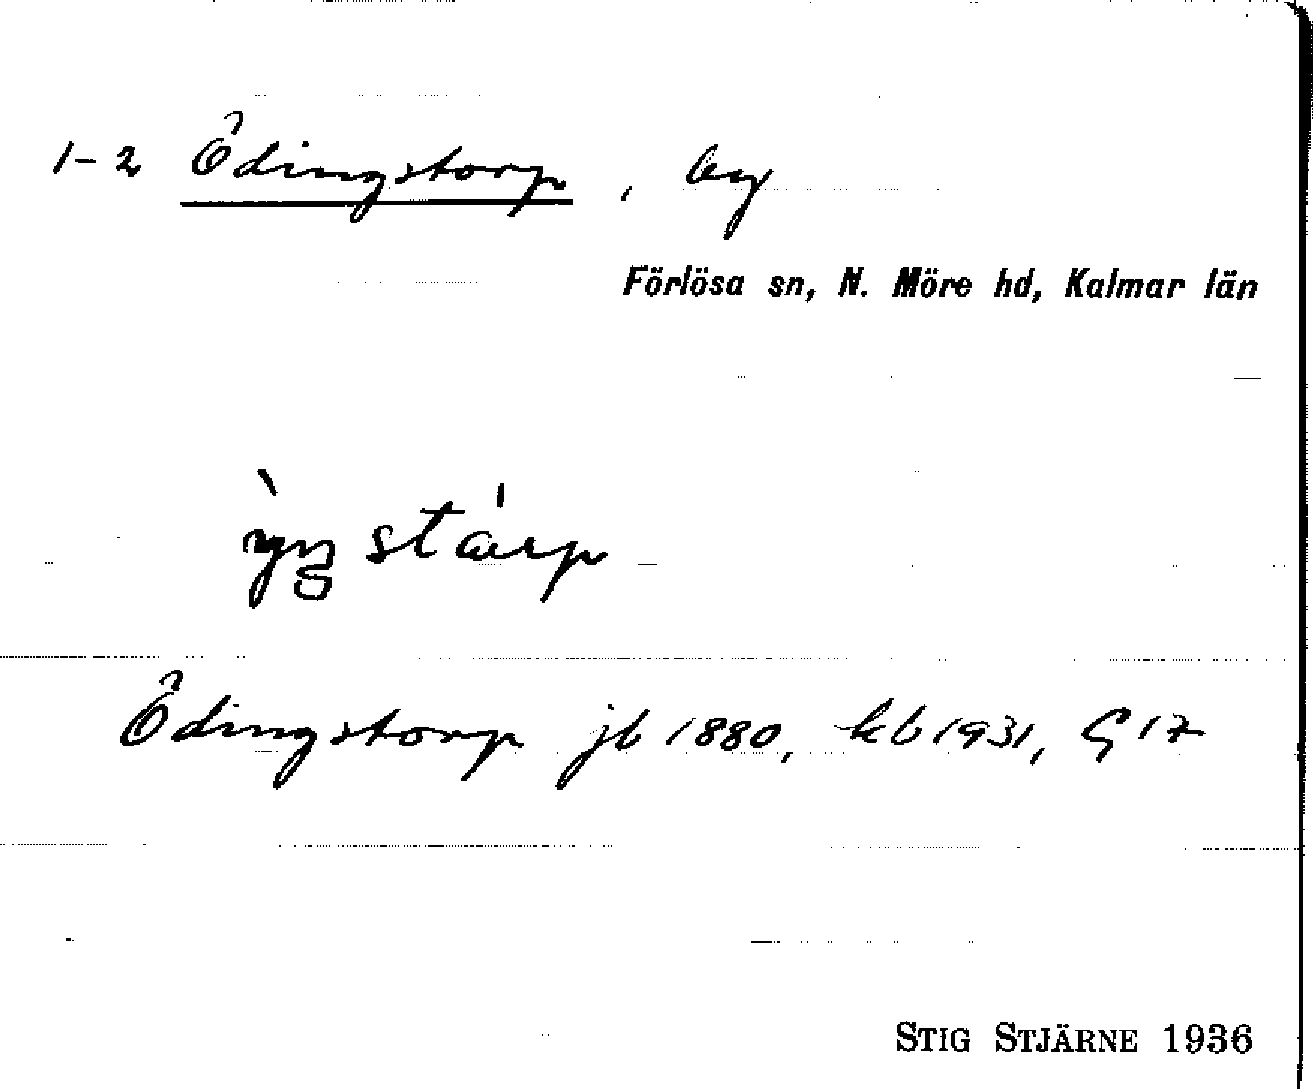 1-2 Ödingstorp, by
Förlösa sn, N. Möre hd, Kalmar län
Ödingstorp jb 1880, kb 1931, G 17
STIG STJÄRNE 1936